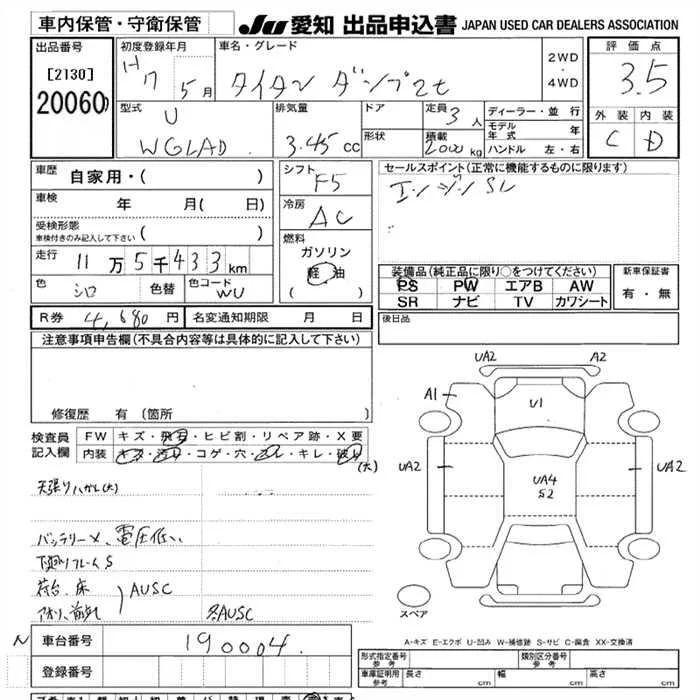 車内保管・守衛保管
JU 愛知 出品申込書 JAPAN USED CAR DEALERS ASSOCIATION
出品番号
[2130]
20060
初度登録年月
H7 5月
車名・グレード
タイタン ダンプ2t
2WD
・
4WD
評価点
3.5
外装 内装
C D
型式
U
WGLAD
排気量
3.45 cc
ドア
形状
定員
3人
積載
2000 kg
ディーラー・並行
モデル年式 年
ハンドル 左・右
車歴 自家用・( )
車検 年 月( 日)
受検形態
車検付きのみ記入して下さい ( )
走行 11万5千433km
色 シロ 色替 色コード WU
シフト
F5
冷房
AC
燃料
ガソリン
軽油
( )
セールスポイント(正常に機能するものに限ります)
エンジンSL
装備品(純正品に限り○をつけてください)
PS PW エアB AW
SR ナビ TV カワシート
新車保証書
有・無
R券 4,680円 名変通知期限 月 日
後日品
注意事項申告欄(不具合内容等は具体的に記入して下さい)
修復歴 有 (箇所 )
検査員記入欄
FW キズ・飛石・ヒビ割・リペア跡・X要
内装 キズ・汚れ・コゲ・穴・スレ・キレ・破れ
(大)
天張りハガレ(大)
バッテリーメ、電圧低い
下廻りフレームS
荷台、床
アオリ、前 AUSC
AUSC
UA2 A2
A1
U1
UA2 UA2
UA4
S2
スペア
A-キズ E-エクボ U-凹み W-補修跡 S-サビ C-腐食 XX-交換済
N 車台番号 190004
登録番号
型式指定番号 参考
類別区分番号 参考
車庫証明用 参考 長さ cm 幅 cm 高さ cm